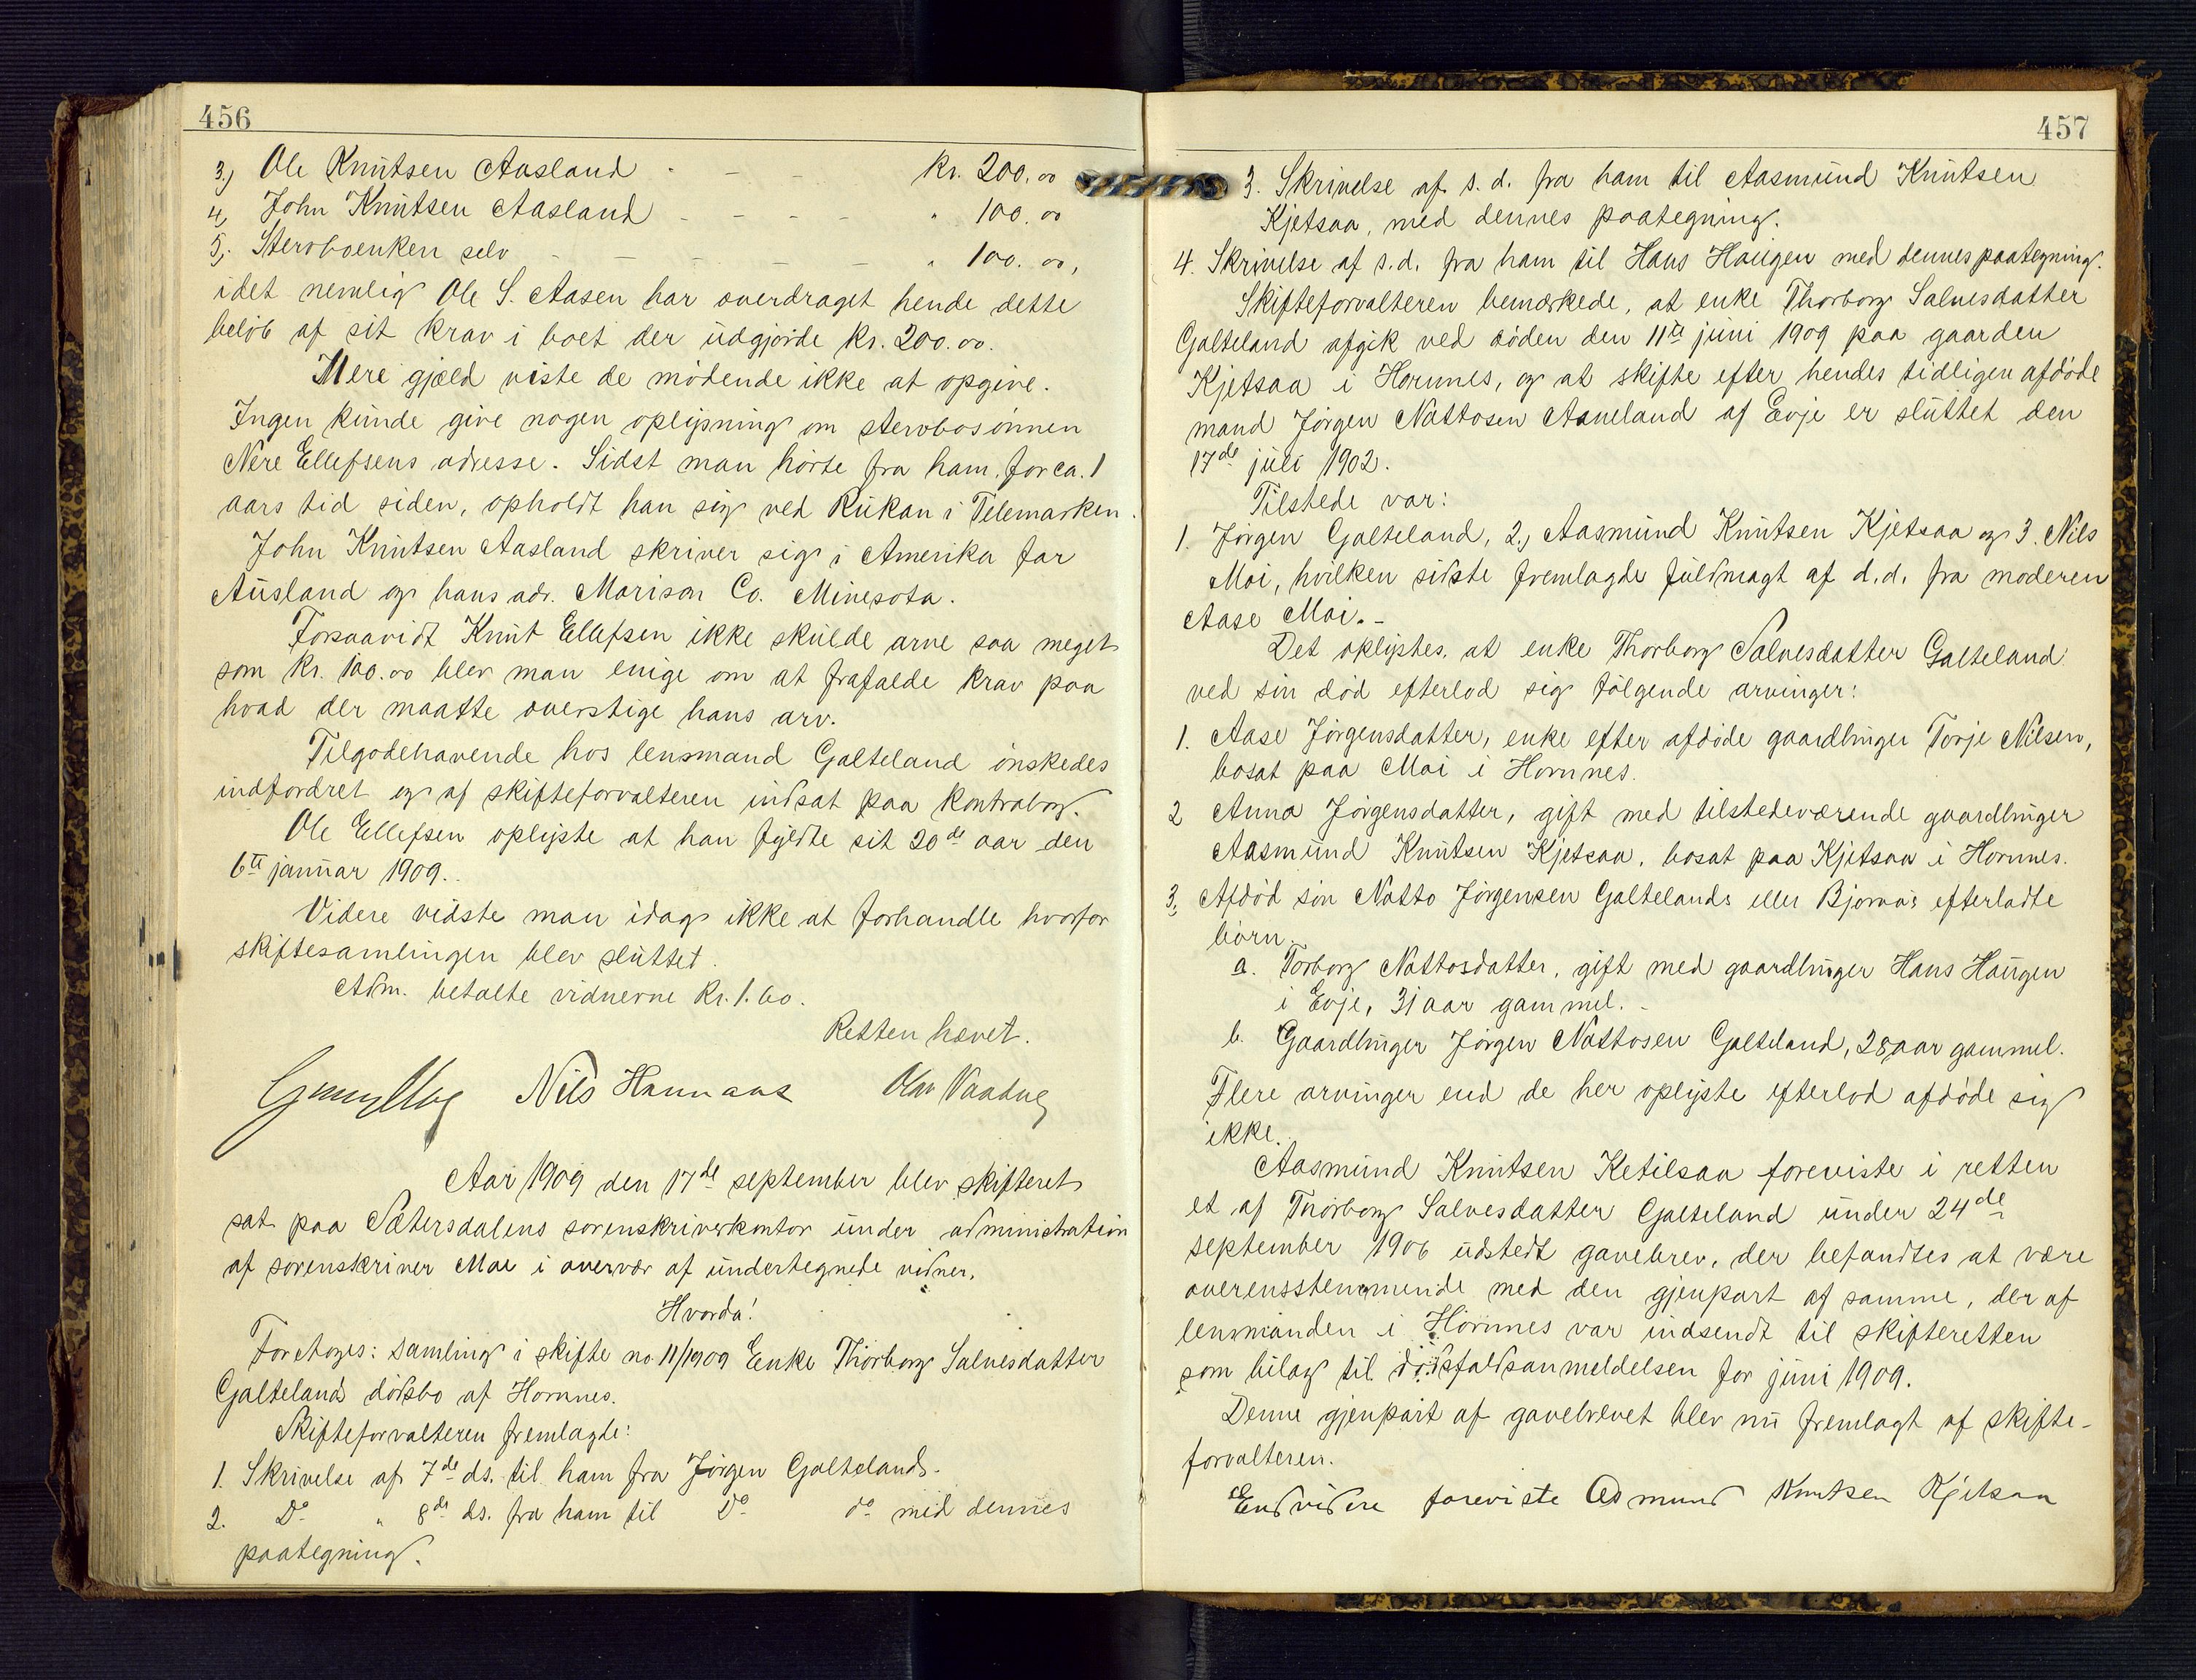 456
3.) Ole Knutsen Aasland - - - Kr. 200.00
4, John Knutsen Aasland - - - - " 100.00
5, Stervboenken selv - - - - - " 100.00,
idet nemlig Ole S. Aasen har overdraget hende dette
beløb af sit krav i boet der udgjorde kr. 200.00.
Mere gjæld viste de mødende ikke at opgive.
Ingen kunde give nogen oplysning om stervbosønnen
Nere Ellefsens adresse. Sidst man hørte fra ham, for ca. 1
aars tid siden, opholdt han sig ved Rukan i Telemarken.
John Knutsen Aasland skriver sig i Amerika for
Ausland og hans adr. Marison Co. Minesota.
Forsaavidt Knut Ellefsen ikke skulde arve saa meget
som kr. 100.00 blev man enige om at frafalde krav paa
hvad der maatte overstige hans arv.
Tilgodehavende hos lensmand Galteland ønskedes
indfordret og af skifteforvalteren indsat paa kontrabog.
Ole Ellefsen oplyste at han fyldte sit 20de aar den
6te januar 1909.
Videre vidste man idag ikke at forhandle hvorfor
skiftesamlingen blev sluttet.
Adm. betalte vidnerne kr. 1.60.
Retten hævet.
Nils Hannaas Olav Vaadne
Aar 1909 den 17de september blev skifteret
sat paa Sætersdalens sorenskriverkontor under administration
af sorenskriver Moe i overvær af undertegnede vidner.
Hvorda!
Foretoges: samling i skifte no 11/1909 Enke Thorborg Salvesdatter
Galtelands dødsbo af Hornnes.
Skifteforvalteren fremlagde:
1. Skrivelse af 7de ds. til ham fra Jørgen Galteland.
2. Do " 8de ds. fra ham til Do do med dennes
paategning.
457
3. Skrivelse af s. d. fra ham til Aasmund Knutsen
Kjetsaa, med dennes paategning.
4. Skrivelse af s.d. fra ham til Hans Haugen med dennes paategning.
Skifteforvalteren bemærkede, at enke Thorborg Salvesdatter
Galteland afgik ved døden den 11te juni 1909 paa gaarden
Kjetsaa i Hornnes, og at skifte efter hendes tidligen afdøde
mand Jørgen Nattosen Aaneland af Evje er sluttet den
17de juli 1902.
Tilstede var:
1. Jørgen Galteland, 2.) Aasmund Knutsen Kjetsaa og 3. Nils
Moi, hvilken sidste fremlagde fuldmagt af d.d. fra moderen
Aase Moi. -
Det oplystes, at enke Thorborg Salvesdatter Galteland
ved sin død efterlod sig følgende arvinger:
1. Aase Jørgensdatter, enke efter afdøde gaardbruger Torje Nilsen,
bosat paa Moi i Hornnes.
2 Anna Jørgensdatter, gift med tilstedeværende gaardbruger
Aasmund Knutsen Kjetsaa, bosat paa Kjetsaa i Hornnes.
3, Afdød søn Natto Jørgensen Galtelands eller Bjoraas efterladte
børn.
a. Torborg Nattosdatter, gift med gaardbruger Hans Haugen
i Evje, 31 aar gammel. -
b. Gaardbruger Jørgen Nattosen Galteland, 28 aar gammel.
Flere arvinger end de her oplyste efterlod afdøde sig
ikke.
Aasmund Knutsen Ketilsaa foreviste i retten
et af Thorborg Salvesdatter Galteland under 24de
september 1906 udstedt gavebrev, der befandtes at være
overensstemmende med den gjenpart af samme, der af
lensmanden i Hornnes var indsendt til skifteretten
som bilag til dødsfaldsanmeldelsen for juni 1909.
Denne gjenpart af gavebrevet blev nu fremlagt af skifte-
forvalteren.
Endvidere foreviste Asmund Knutsen Kjetsaa